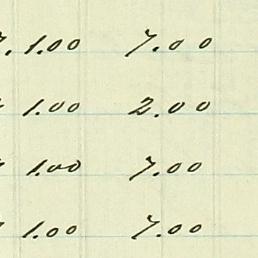 1.00 7.00
1.00 2.00
1.00 7.00
1.00 7.00